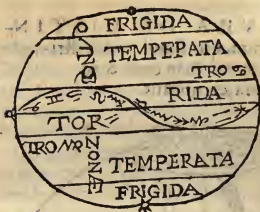 FRIGIDA
TEMPEPATA
TRO ♋
RIDA
TOR
TRO ♑
ZONÆ
TEMPERATA
FRIGIDA